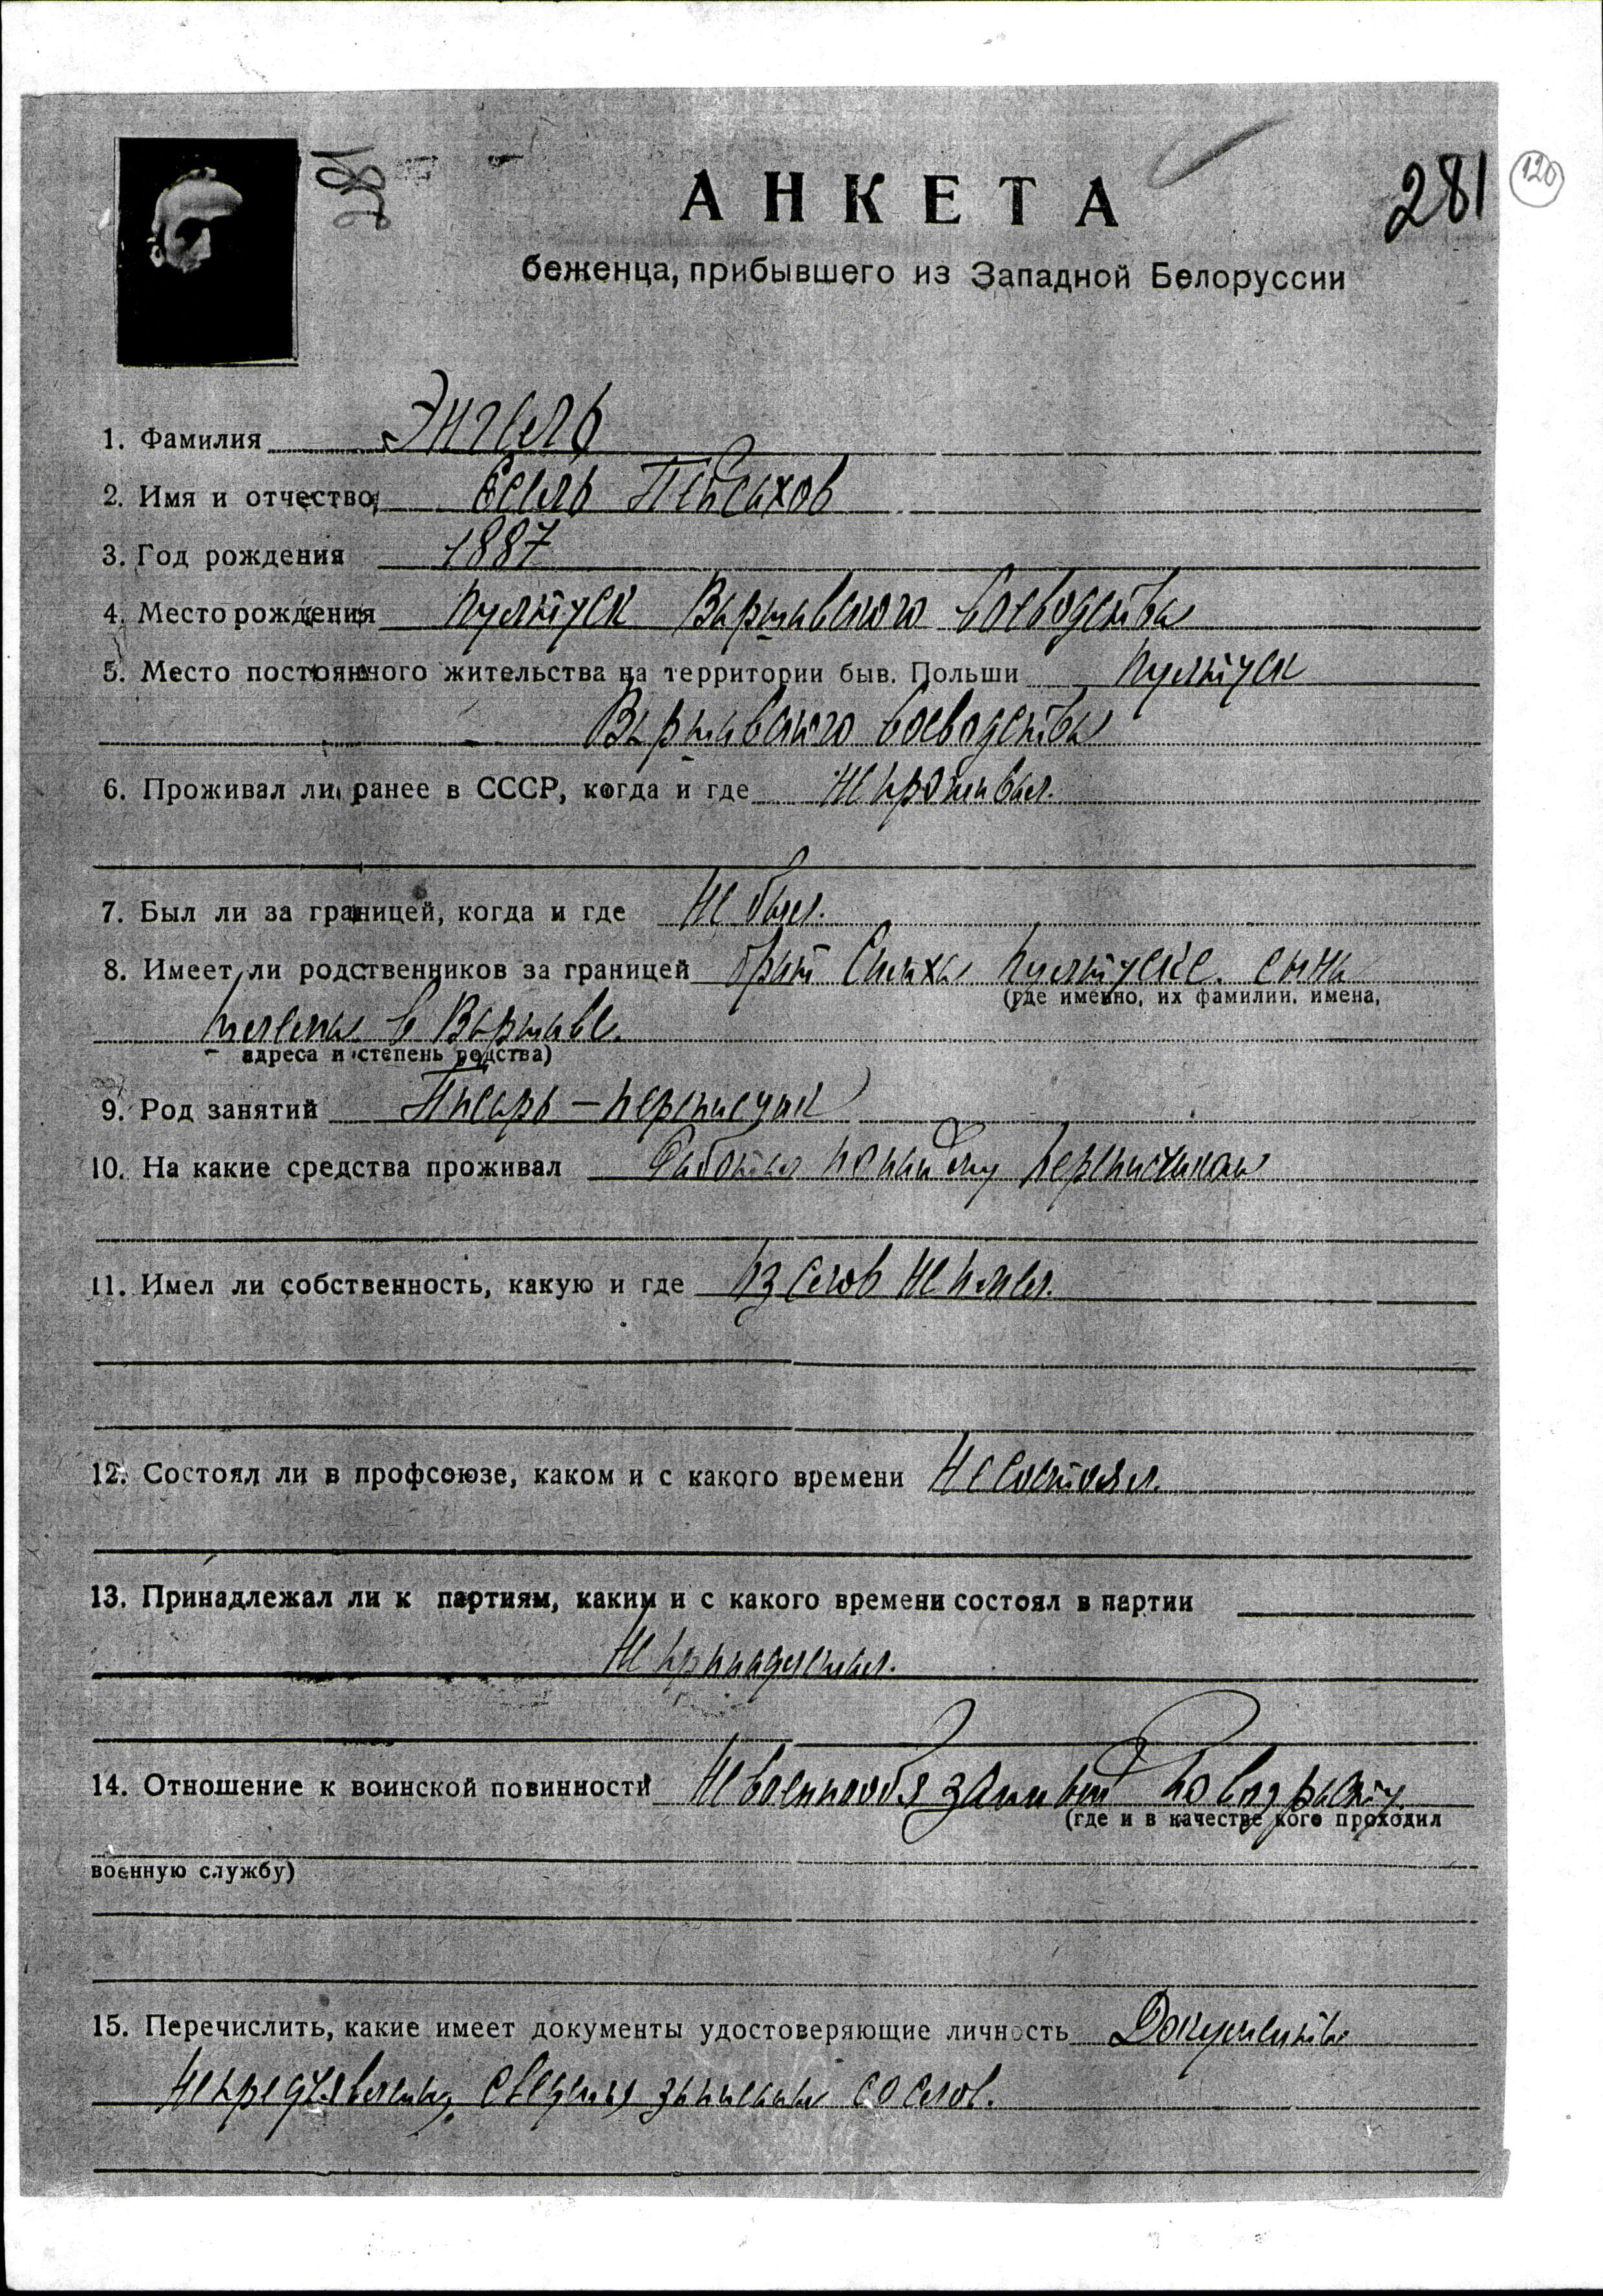 281
АНКЕТА
281
120
беженца, прибывшего из Западной Белоруссии
1. Фамилия Энгель
2. Имя и отчество Есель Пейсахов
3. Год рождения 1887
4. Место рождения Пултуск Варшавского воеводства
5. Место постоянного жительства на территории быв. Польши Пултуск
Варшавского воеводства
6. Проживал ли ранее в СССР, когда и где Не проживал.
7. Был ли за границей, когда и где Не был.
8. Имеет ли родственников за границей брат Симха Пултуске. сына
(где именно, их фамилии, имена,
в Варшаве.
адреса и степень родства)
9. Род занятий Писарь – переписчик
10. На какие средства проживал Работал по найму переписчиком
11. Имел ли собственность, какую и где Из слов не имел.
12. Состоял ли в профсоюзе, каком и с какого времени Не состоял.
13. Принадлежал ли к партиям, каким и с какого времени состоял в партии
Не принадлежал.
14. Отношение к воинской повинности Невоеннообязанный по возрасту
(где и в качестве кого проходил
военную службу)
15. Перечислить, какие имеет документы удостоверяющие личность Документы
не предъявлены, сведения записаны со слов.